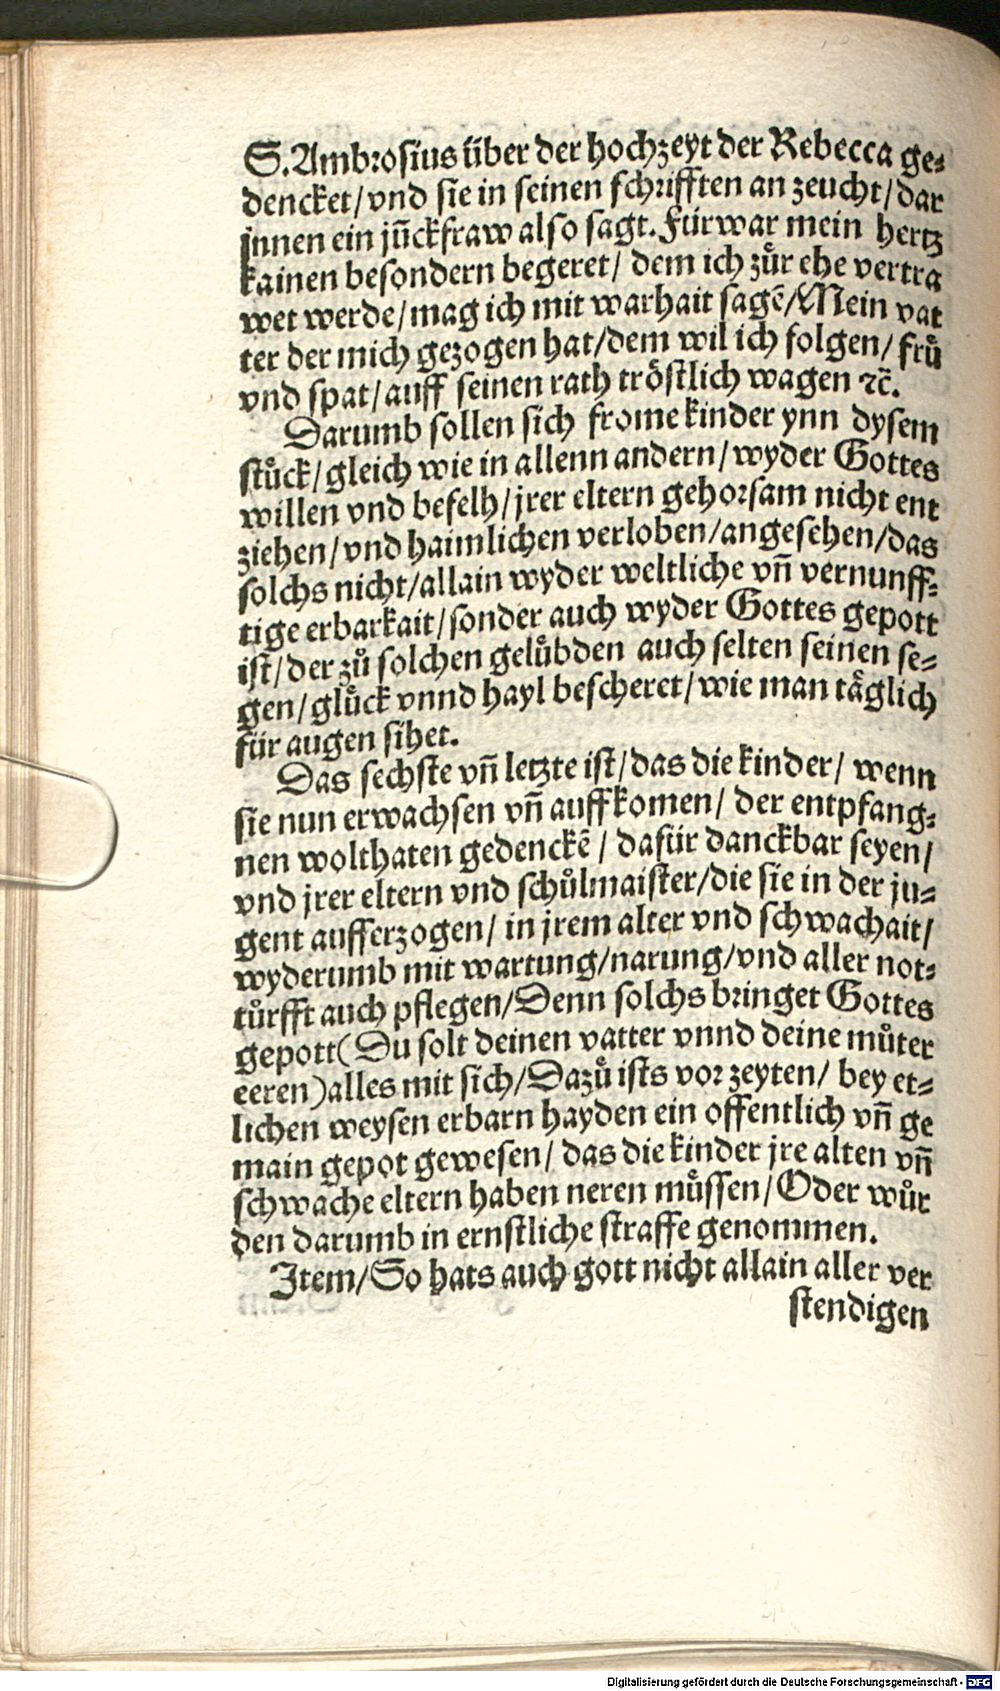 S. Ambrosius über der hochzeyt der Rebecca ge⸗
dencket/ vnd sie in seinen schrifften an zeucht/ dar
jnnen ein jũckfraw also sagt. Fürwar mein hertz
kainen besondern begeret/ dem ich zůr ehe vertra
wet werde/ mag ich mit warhait sagẽ/ Mein vat
ter der mich gezogen hat/ dem wil ich folgen/ frů
vnd spat/ auff seinen rath tröstlich wagen ⁊c̃.
Darumb sollen sich frome kinder ynn dysem
stůck/ gleich wie in allenn andern/ wyder Gottes
willen vnd befelh/ jrer eltern gehorsam nicht ent
ziehen/ vnd haimlichen verloben/ angesehen/ das
solchs nicht/ allain wyder weltliche vñ vernunff⸗
tige erbarkait/ sonder auch wyder Gottes gepott
ist/ der zů solchen gelůbden auch selten seinen se⸗
gen/ glůck vnnd hayl bescheret/ wie man täglich
für augen sihet.
Das sechste vñ letzte ist/ das die kinder/ wenn
sie nun erwachsen vñ auffkomen/ der entpfang⸗
nen wolthaten gedenckẽ/ dafür danckbar seyen/
vnd jrer eltern vnd schůlmaister/ die sie in der ju⸗
gent aufferzogen/ in jrem alter vnd schwachait/
wyderumb mit wartung/ narung/ vnd aller not⸗
tůrfft auch pflegen/ Denn solchs bringet Gottes
gepott (Du solt deinen vatter vnnd deine můter
eeren) alles mit sich/ Dazů ists vor zeyten/ bey et⸗
lichen weysen erbarn hayden ein offentlich vñ ge
main gepot gewesen/ das die kinder jre alten vñ
schwache eltern haben neren můssen/ Oder wůr
den darumb in ernstliche straffe genommen.
Item/ So hats auch gott nicht allain aller ver
stendigen
Digitalisierung gefördert durch die Deutsche Forschungsgemeinschaft - DFG